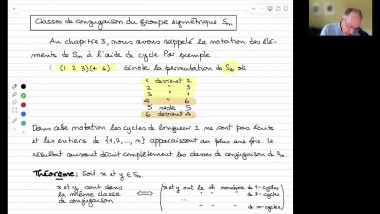 Classes de conjugaison du groupe symétrique Sn
Au chapitre 3, nous avons rappelé la notation des élé-
ments de Sn à l'aide de cycle. Par exemple
(1 2 3)(4 6) dénote la permutation de S6 où
1 devient 2
2 " 3
3 " 1
4 " 6
5 reste 5
6 devient 4
Dans cette notation les cycles de longueur 1 ne sont pas écrits
et les entiers de {1,2,..., n} apparaissent au plus une fois. Le
résultat suivant décrit complètement les classes de conjugaison de Sn.
Théorème: Soit x et y ∈ Sn.
x et y sont dans
la même classe
de conjugaison
⟺
x et y ont le même nombre de 1-cycles
" " " de 2-cycles
" " " de n-cycles